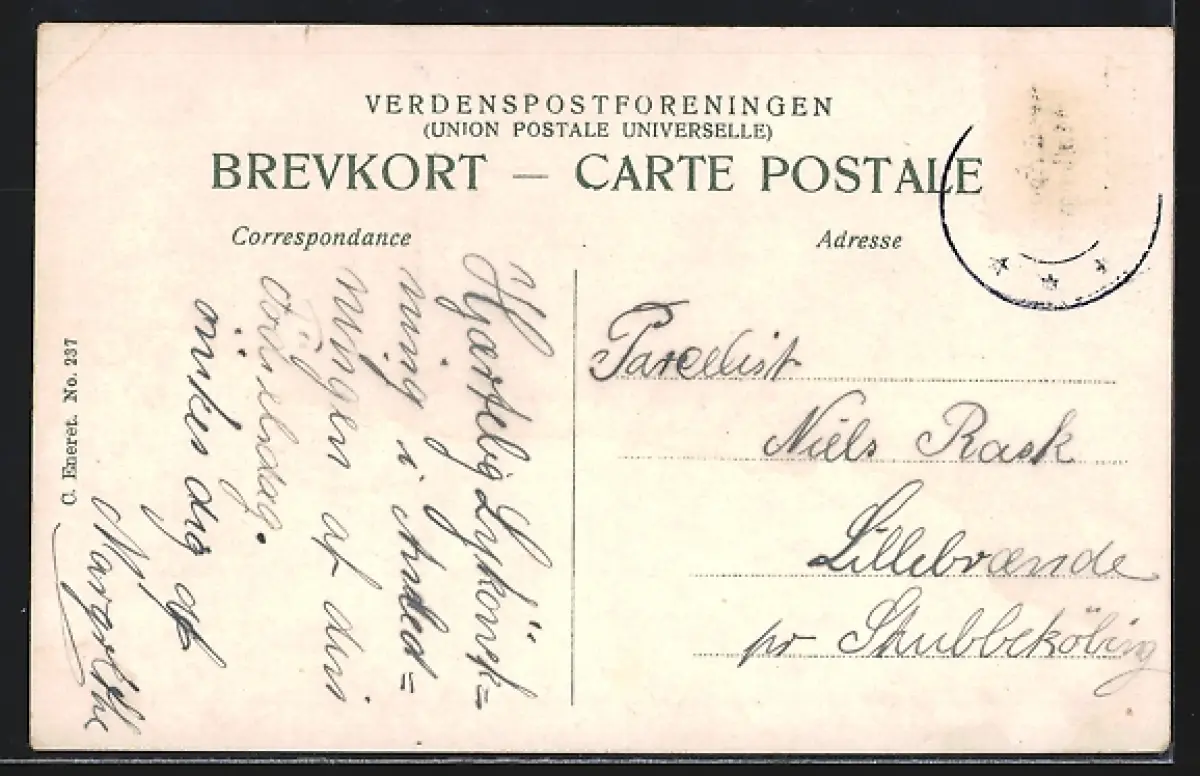 VERDENSPOSTFORENINGEN
(UNION POSTALE UNIVERSELLE)
BREVKORT — CARTE POSTALE
Correspondance
Adresse
Hjærtelig Lykönsk=
ning i Anled=
ningen af din
Födselsdag.
önskes dig af
Margrethe
Parcellist
Niels Rask
Lillebrænde
pr Stubbeköbing
C. Eneret. No. 237